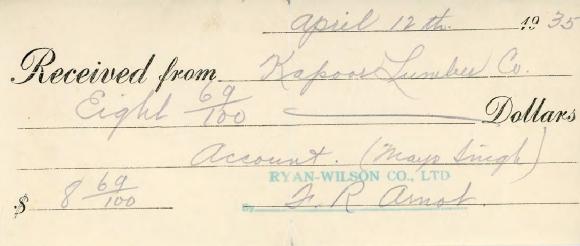 April 12th. 1935
Received from Kapoor Lumber Co.
Eight 69/100 Dollars
Account. (Mayo Singh)
RYAN-WILSON CO., LTD
$ 8 69/100 By F. R. Arnot